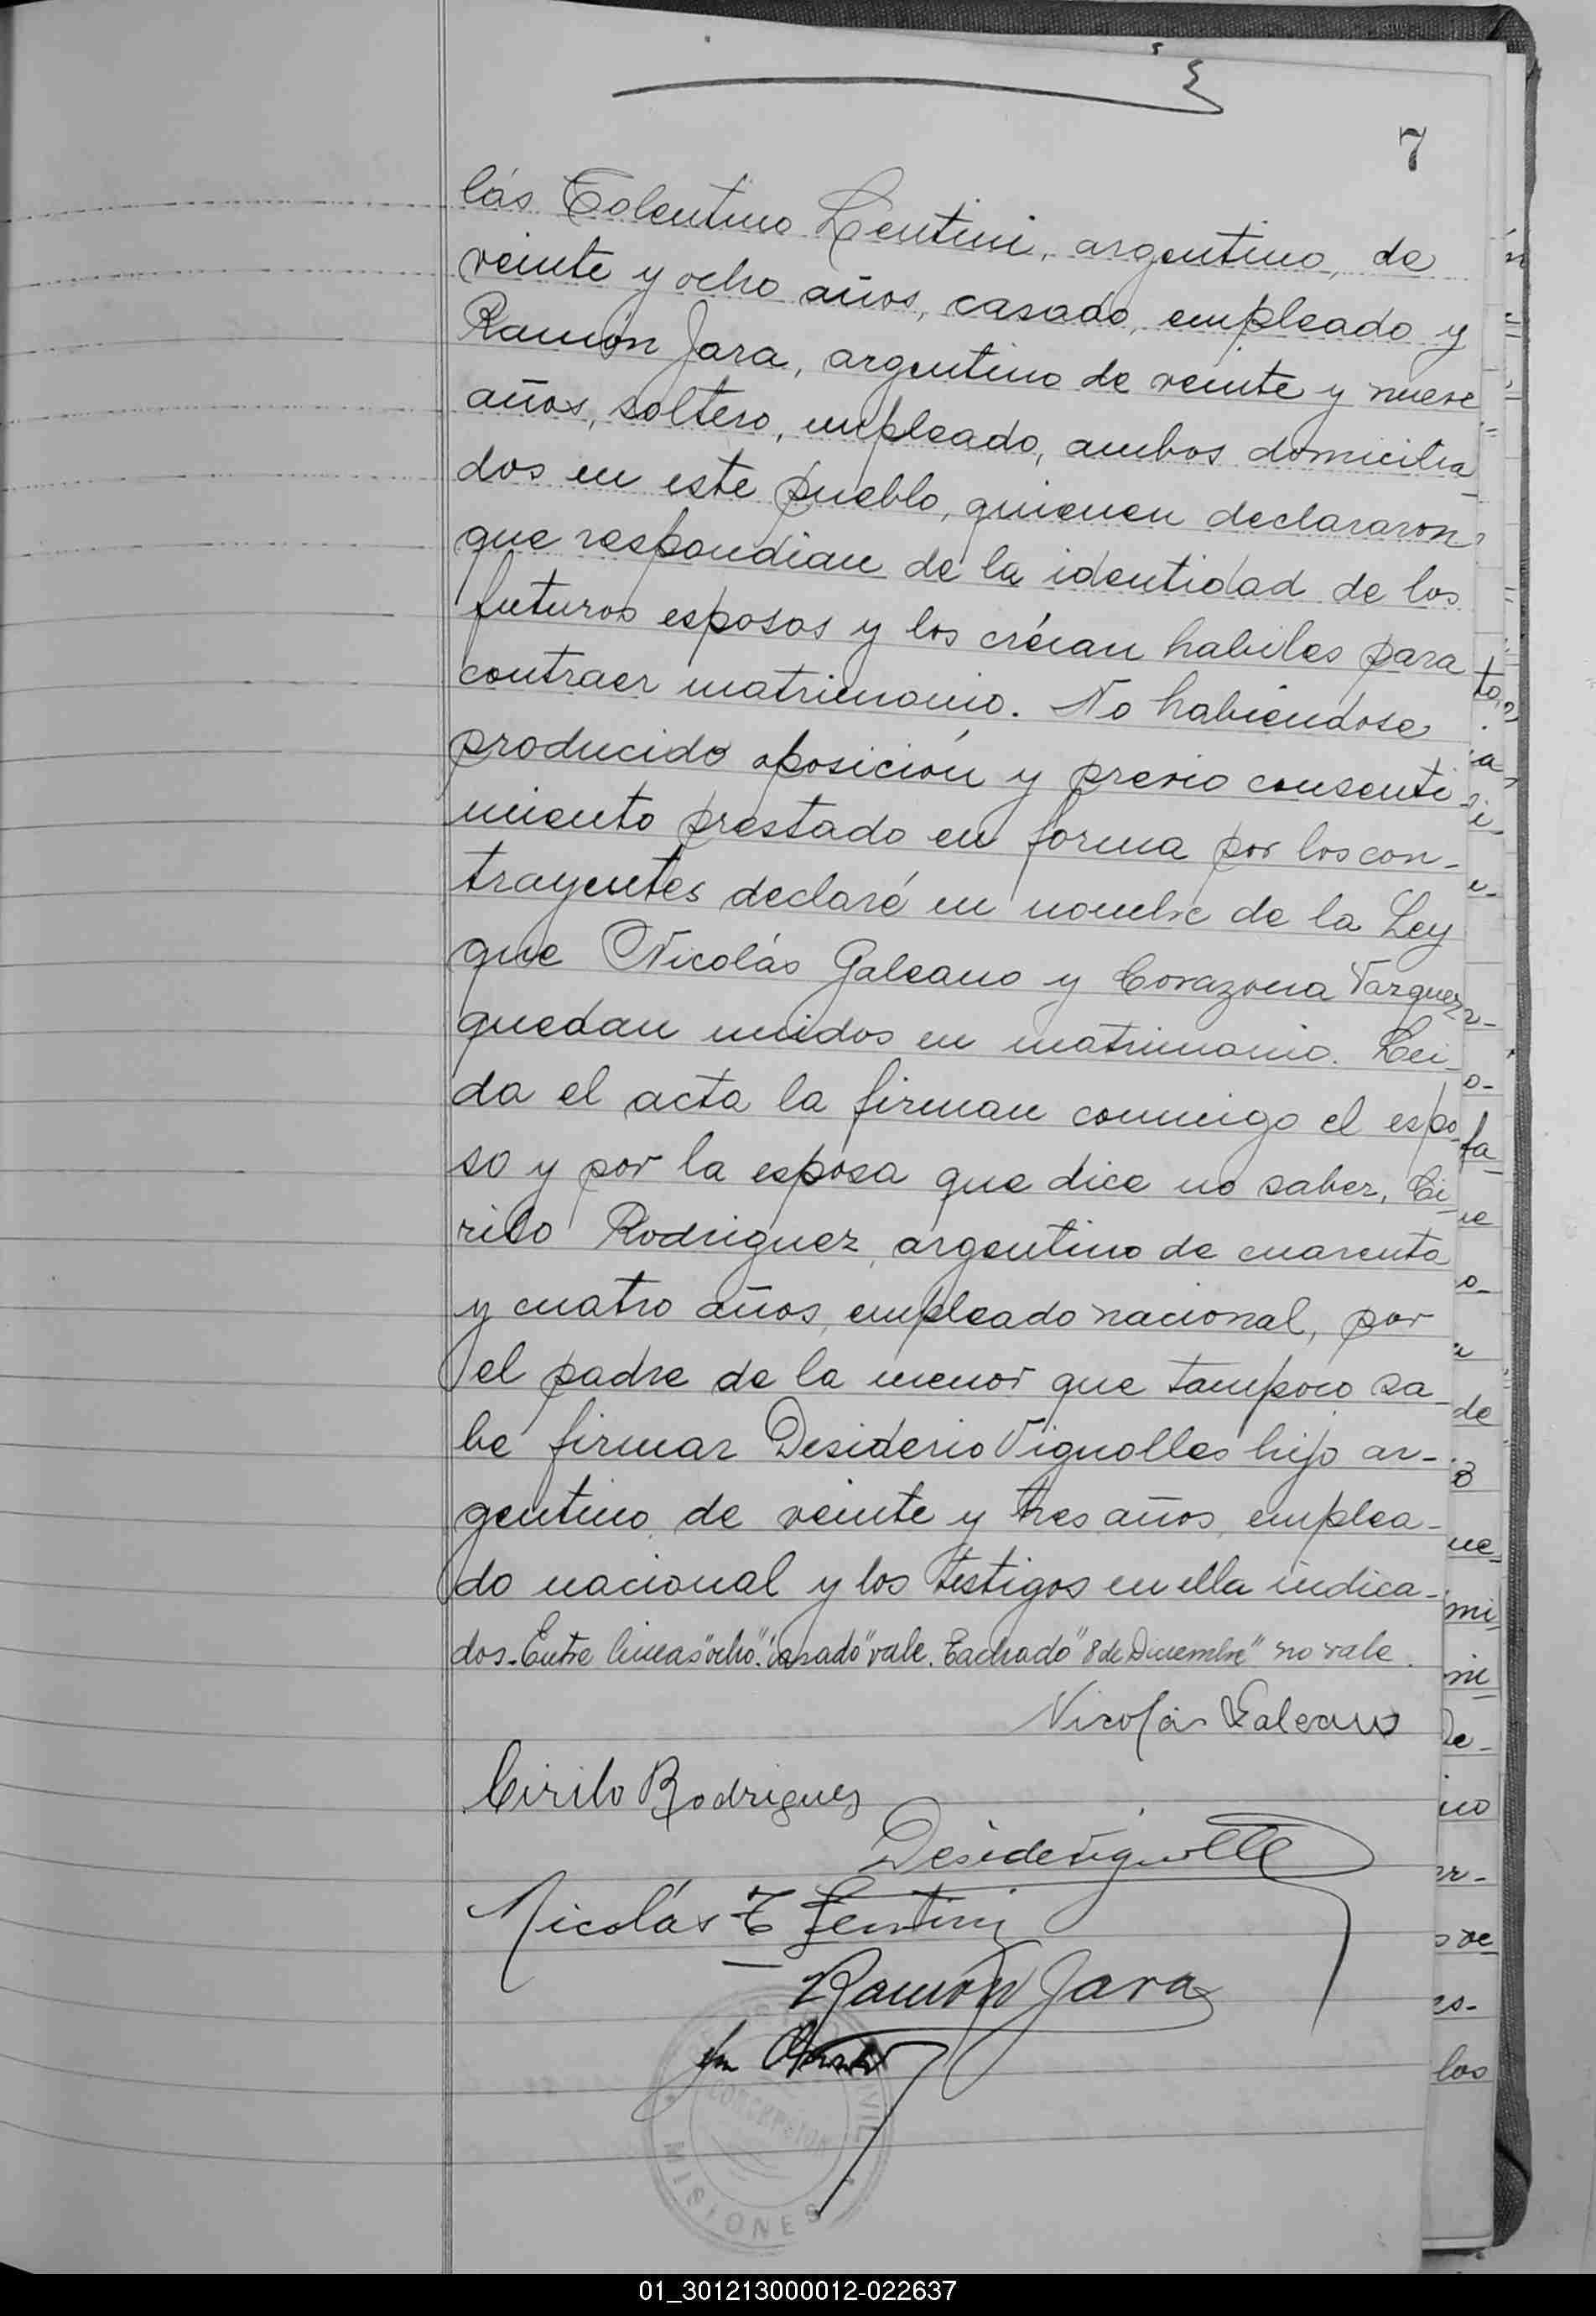 7
lás Tolentino Lentini, argentino, de
veinte y ocho años, casado, empleado y
Ramón Jara, argentino de veinte y nueve
años, soltero, empleado, ambos domicilia-
dos en este pueblo, quienen declararon
que respondian de la identidad de los
futuros esposos y los créian habiles para
contraer matrimonio. No habiéndose
producido oposición y previo consenti-
miento prestado en forma por los con-
trayentes declaré en nombre de la Ley
que Nicolás Galeano y Corazona Vazquez
quedan unidos en matrimonio. Lei-
da el acta la firman conmigo el espo-
so y por la esposa que dice no saber, Ci-
rilo Rodriguez, argentino de cuarenta
y cuatro años, empleado nacional, por
el padre de la menor que tampoco sa-
be firmar Desiderio Vignolles hijo ar-
gentino de veinte y tres años, emplea-
do nacional y los testigos en ella indica-
dos. Entre lineas "ocho" "casado" vale. Tachado "8 de Diciembre" no vale.
Nicolás Galeano
Cirilo Rodrigues
Nicolás T Lentini
Ramón Jara
CONCEPCION
MISIONES
01_301213000012-022637